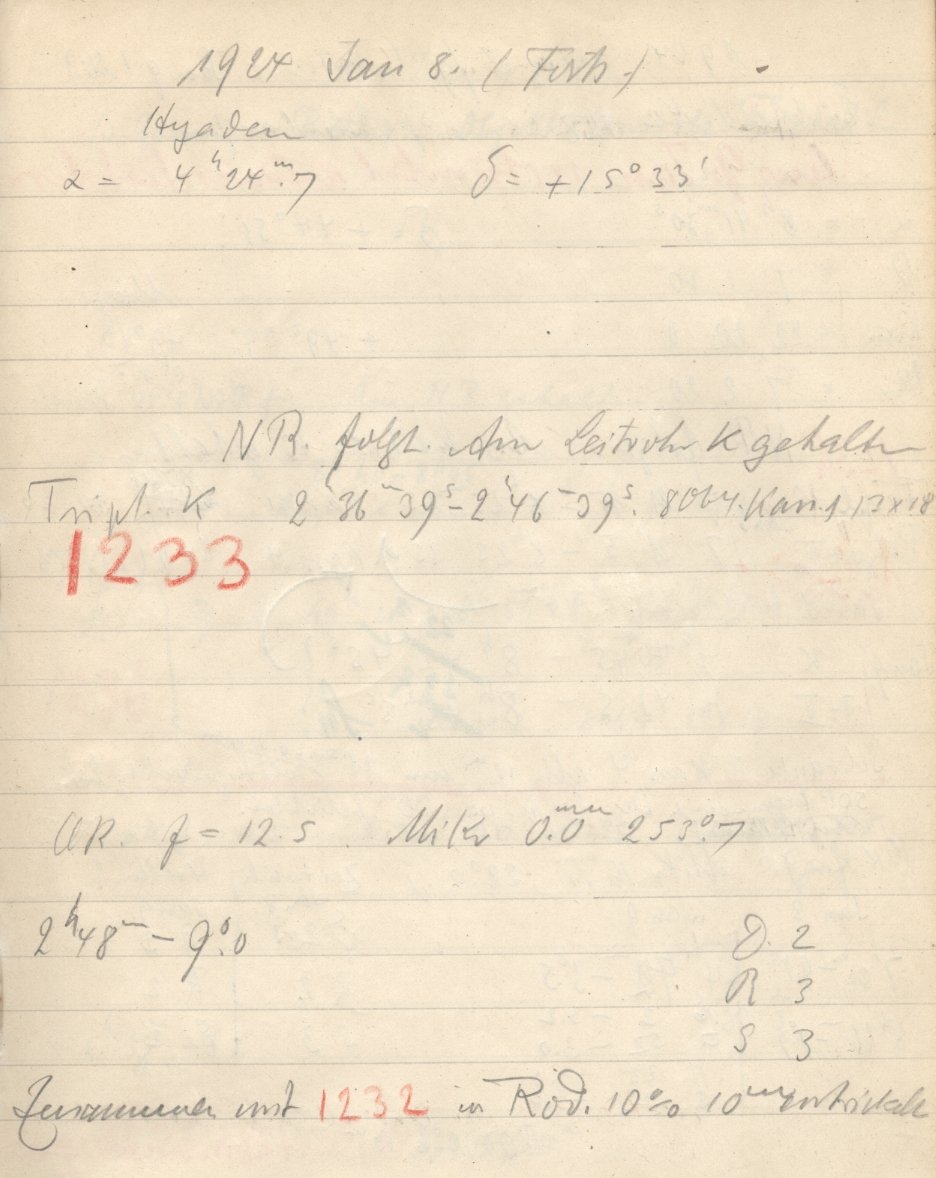 1924 Jan 8. (Forts.)
Hyaden
α = 4ʰ 24ᵐ.7 δ = +15°33'
NR. folgt. Am Leitrohr K gehalten
Tripl. K 2ʰ36ᵐ39ˢ-2ʰ46ᵐ39ˢ. Kass. 1 13x18
1233
UR. f = 12.5 Mikr 0.0ᵐᵐ 253°.7
2ʰ48ᵐ - 9°.0 D. 2
R 3
S 3
Zusammen mit 1232 in Rod. 10% 10ᵐ entwickelt